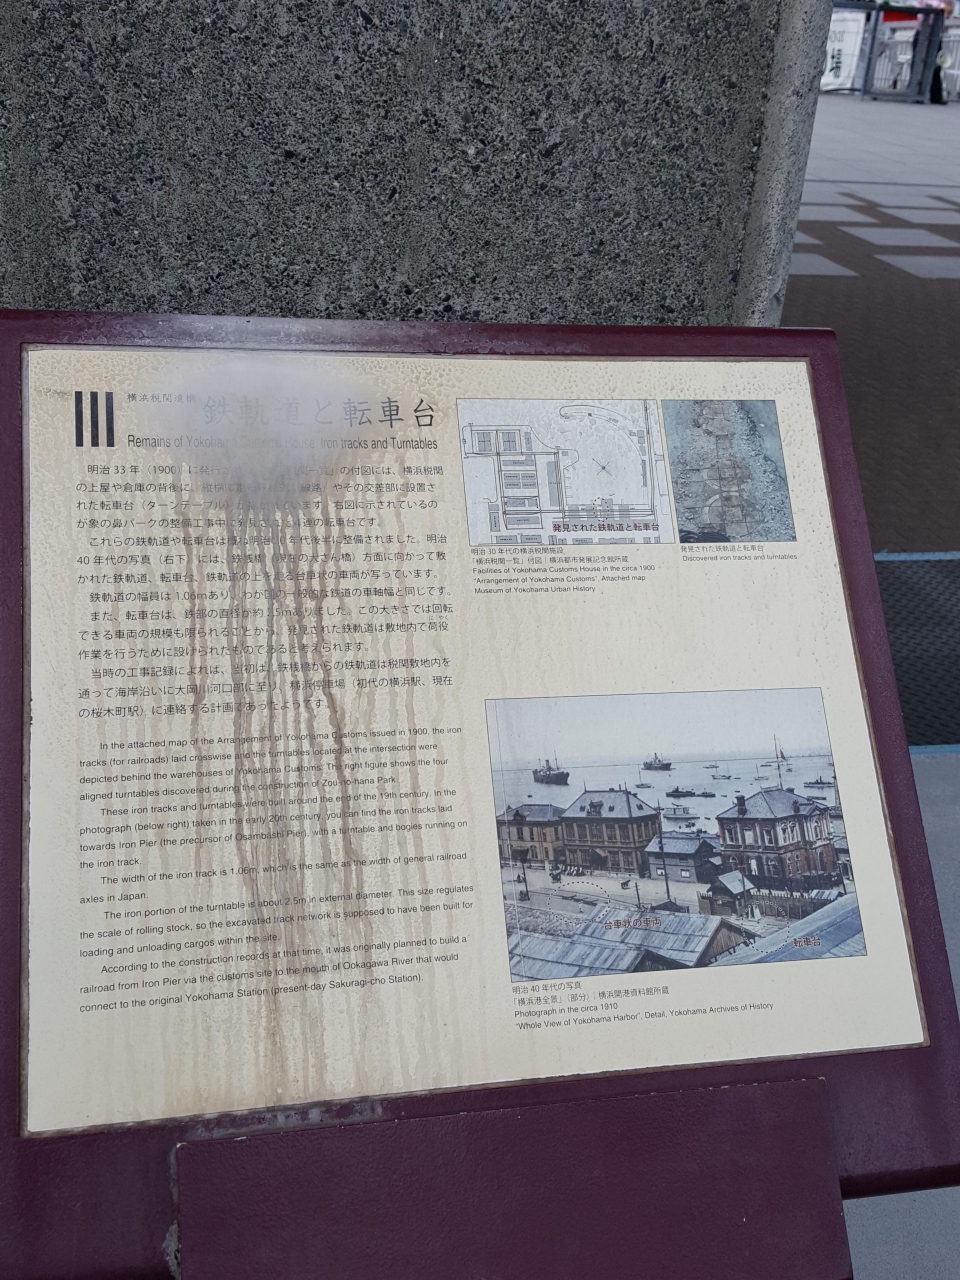 III
横浜税関遺構
鉄軌道と転車台
Remains of Yokohama House: Iron tracks and Turntables
明治 33 年（1900）に発行 の付図には、横浜税関
の上屋や倉庫の背後に、 やその交差部に設置さ
れた転車台（ターンテーブル）が います。右図に示されているの
が象の鼻パークの整備工事中に発見された4連の転車台です。
これらの鉄軌道や転車台は 年代後半に整備されました。明治
40 年代の写真（右下）には、鉄桟橋（現在の大さん橋）方面に向かって敷
かれた鉄軌道、転車台、鉄軌道の上を走る台車状の車両が写っています。
鉄軌道の幅員は 1.06mあり、わが国の一般的な鉄道の車軸幅と同じです。
また、転車台は、鉄部の直径が約 2.5mありました。この大きさでは回転
できる車両の規模も限られることから、発見された鉄軌道は敷地内で荷役
作業を行うために設けられたものであると考えられます。
当時の工事記録によれば、当初は、鉄桟橋からの鉄軌道は税関敷地内を
通って海岸沿いに大岡川河口部に至り、横浜停車場（初代の横浜駅、現在
の桜木町駅）に連絡する計画であったようです。
In the attached map of the Arrangement of Yokohama Customs issued in 1900, the iron
tracks (for railroads) laid crosswise and the turntables located at the intersection were
depicted behind the warehouses of Yokohama Customs. The right figure shows the four
aligned turntables discovered during the construction of Zou-no-hana Park.
These iron tracks and turntables were built around the end of the 19th century. In the
photograph (below right) taken in the early 20th century, you can find the iron tracks laid
towards Iron Pier (the precursor of Osambashi Pier), with a turntable and bogies running on
the iron track.
The width of the iron track is 1.06m, which is the same as the width of general railroad
axles in Japan.
The iron portion of the turntable is about 2.5m in external diameter. This size regulates
the scale of rolling stock, so the excavated track network is supposed to have been built for
loading and unloading cargos within the site.
According to the construction records at that time, it was originally planned to build a
railroad from Iron Pier via the customs site to the mouth of Ookagawa River that would
connect to the original Yokohama Station (present-day Sakuragi-cho Station).
発見された鉄軌道と転車台
明治 30 年代の横浜税関施設
「横浜税関一覧」付図｜横浜都市発展記念館所蔵
Facilities of Yokohama Customs House in the circa 1900
"Arrangement of Yokohama Customs", Attached map
Museum of Yokohama Urban History
発見された鉄軌道と転車台
Discovered iron tracks and turntables
台車状の車両
転車台
明治 40 年代の写真
「横浜港全景」（部分）｜横浜開港資料館所蔵
Photograph in the circa 1910
"Whole View of Yokohama Harbor", Detail, Yokohama Archives of History